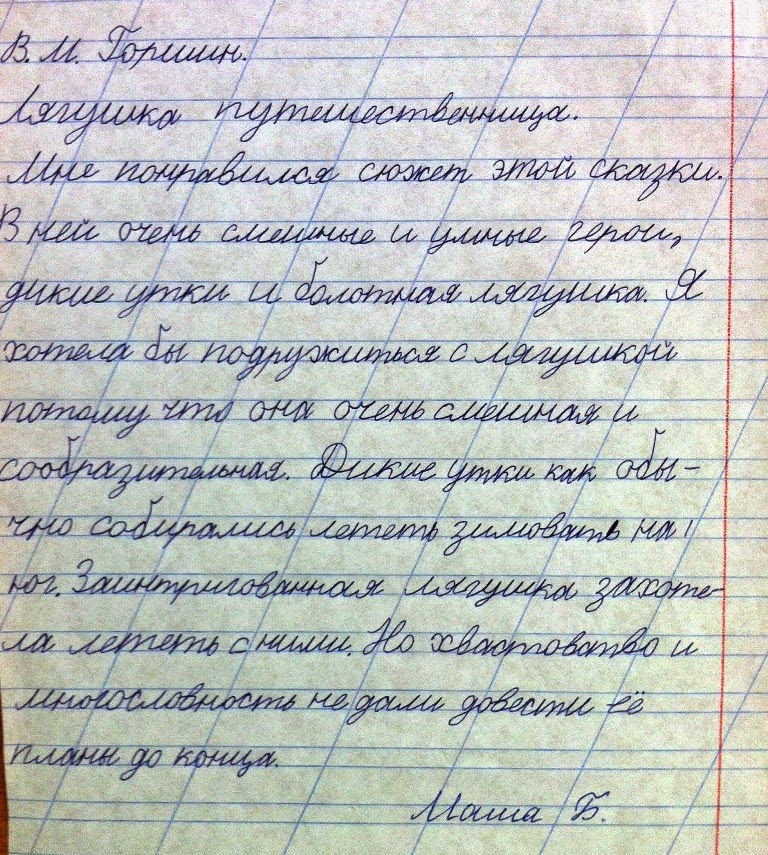 В. М. Гаршин.
Лягушка путешественница.
Мне понравился сюжет этой сказки.
В ней очень смешные и умные герои,
дикие утки и болотная лягушка. Я
хотела бы подружиться с лягушкой
потому что она очень смешная и
сообразительная. Дикие утки как обы-
чно собирались лететь зимовать на
юг. Заинтригованная лягушка захоте-
ла лететь с ними. Но хвастовство и
многословность не дали довести её
планы до конца.
Маша Б.